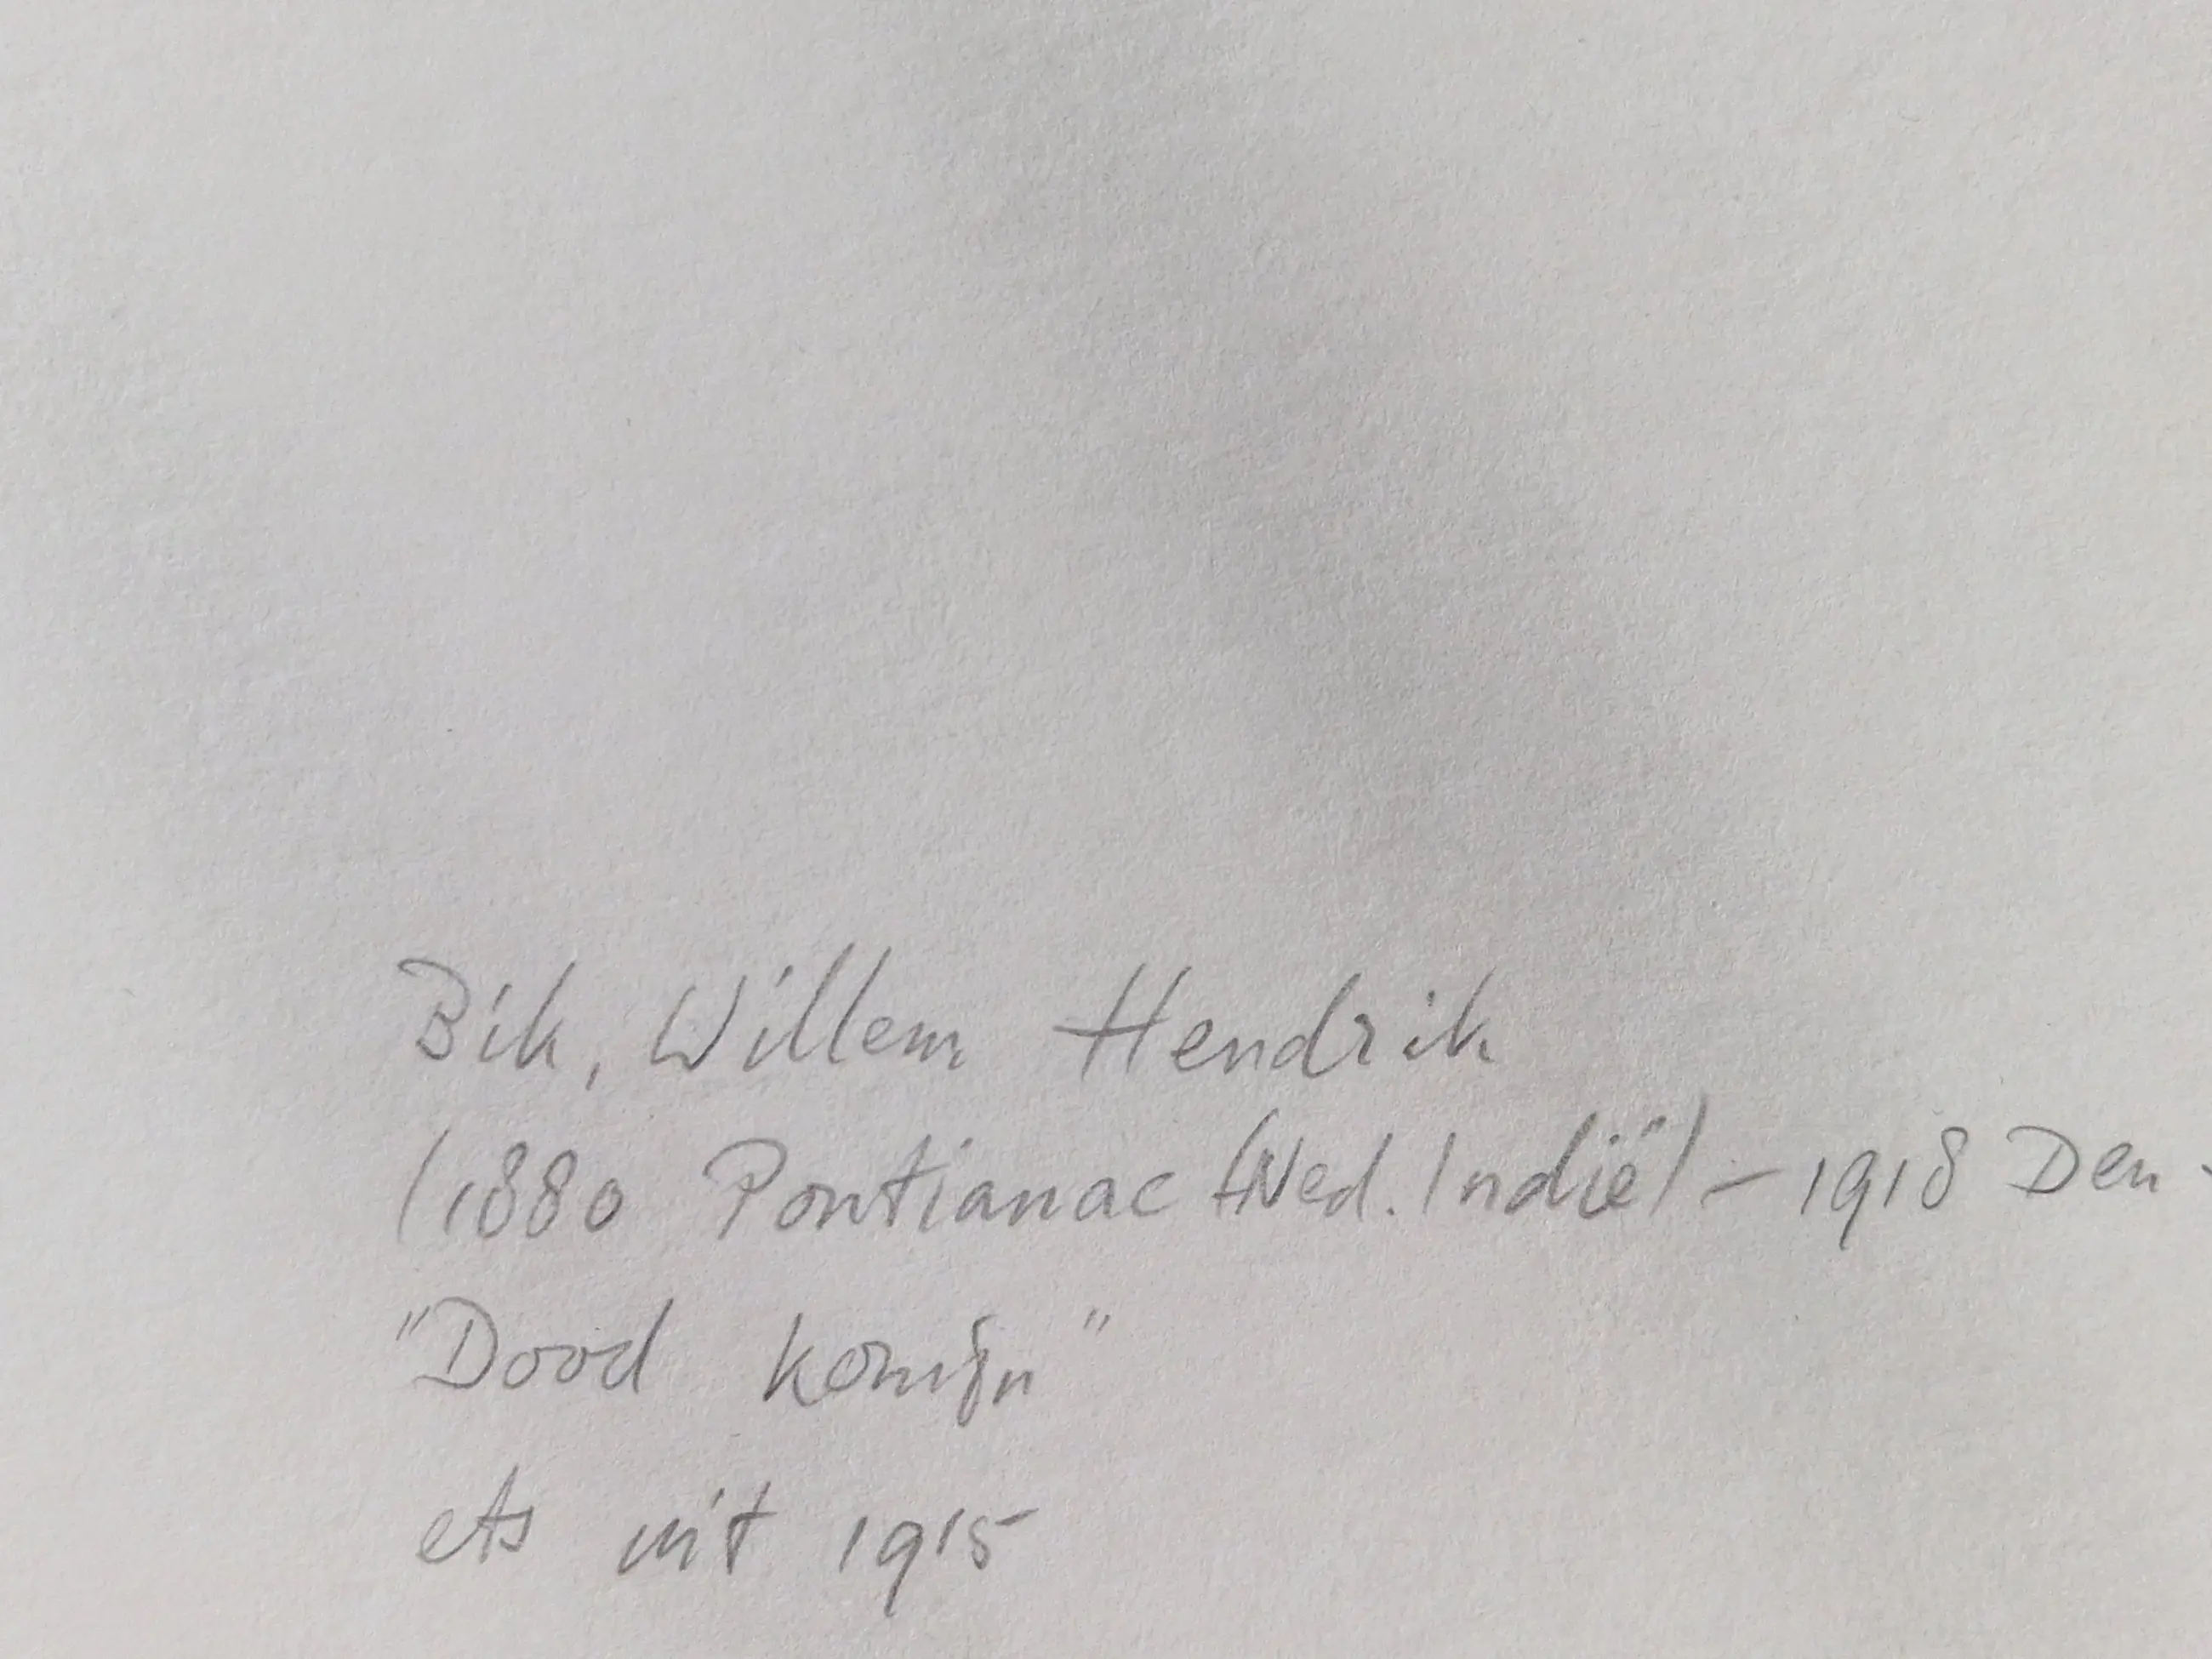 Bik, Willem Hendrik
(1880 Pontianac (Ned. Indië) – 1918 Den
"Dood konijn"
ets uit 1915